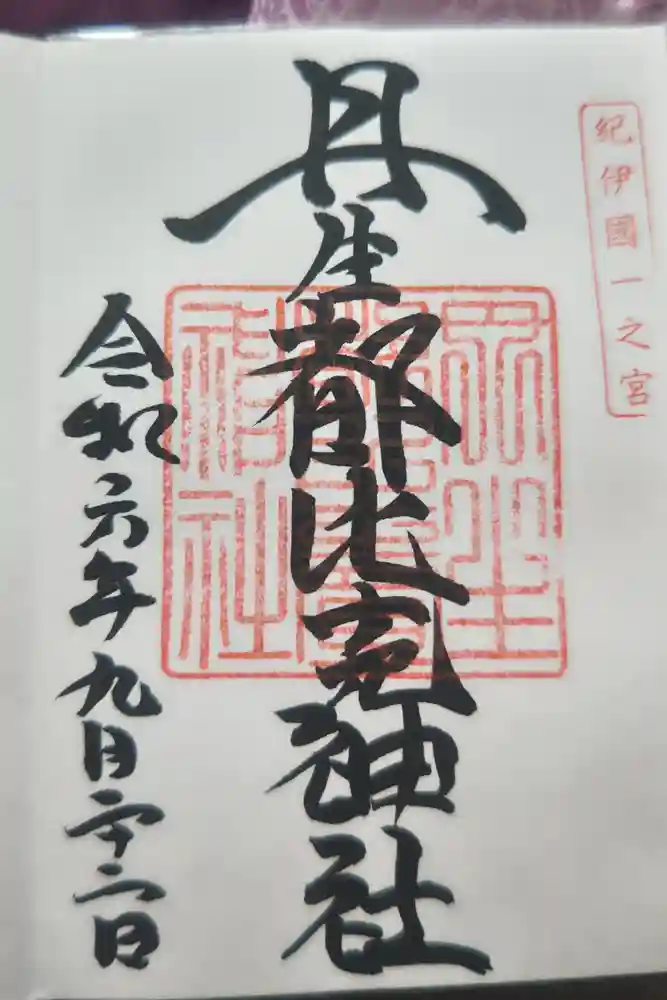 紀伊國一之宮
丹生都比売神社
令和六年九月二十二日